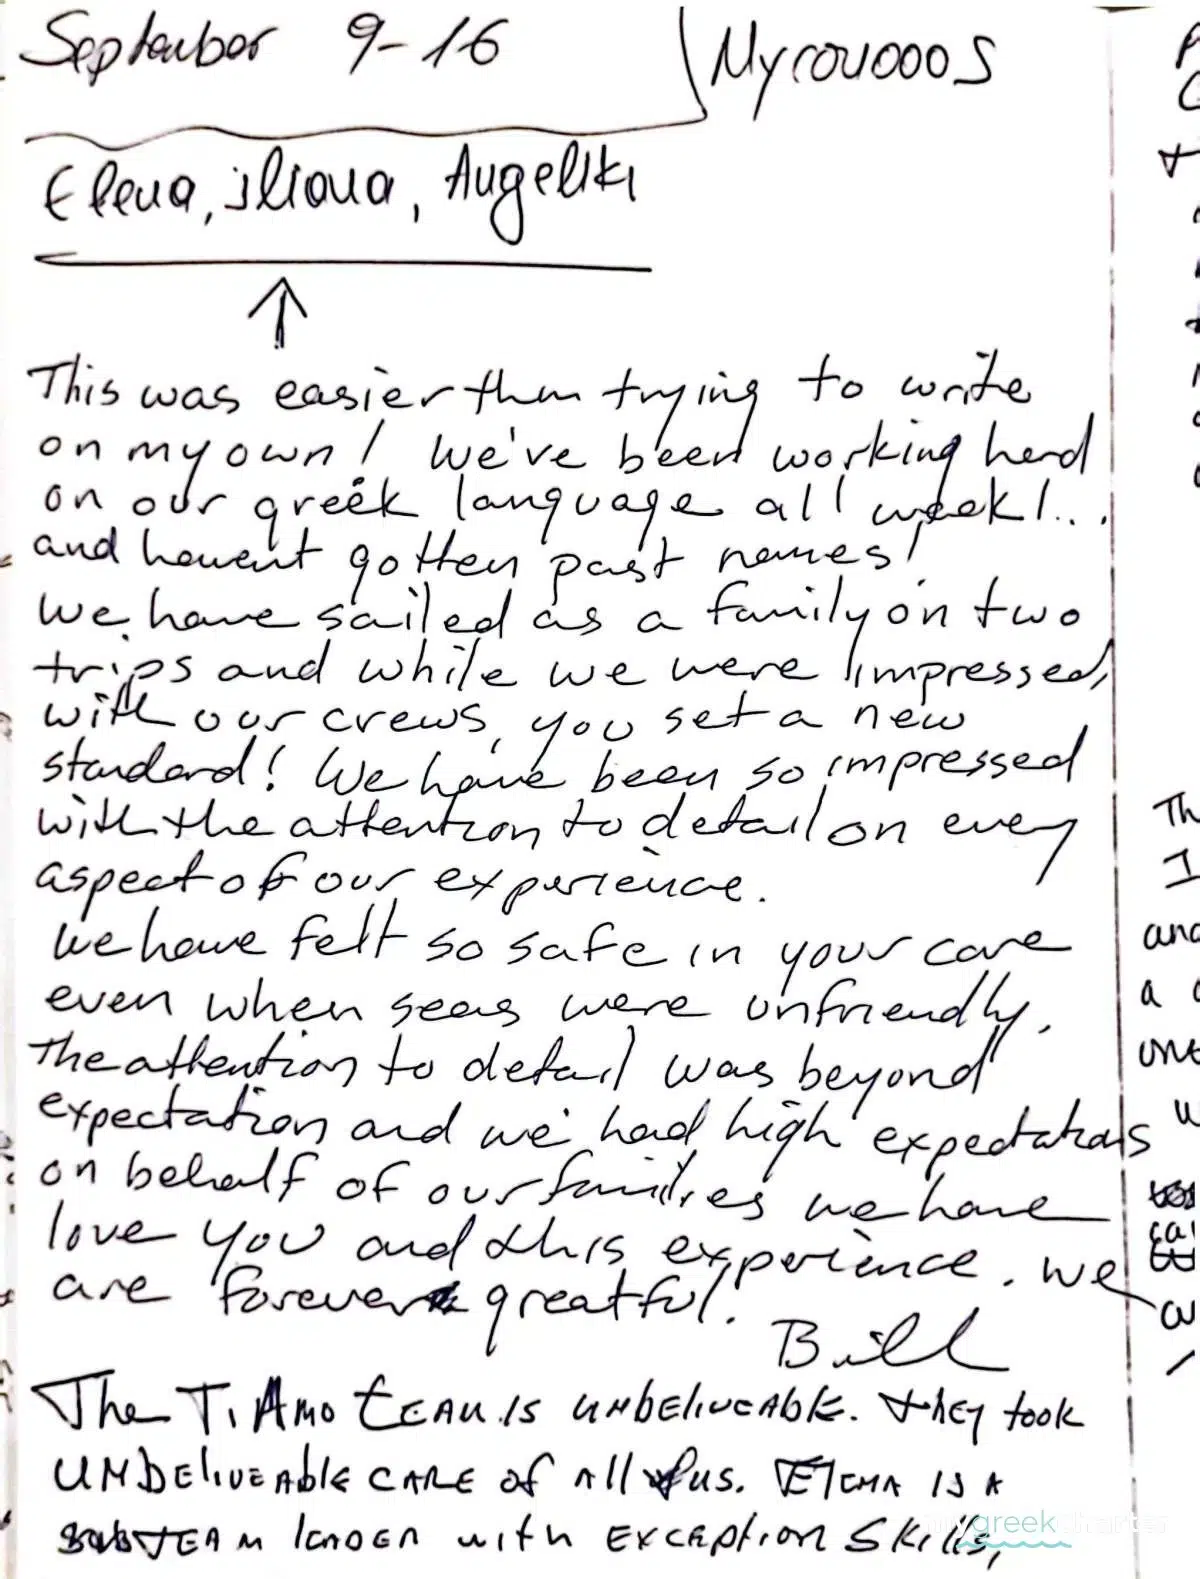 September 9-16
Myrovooos
Elena, iliana, Angeliki
This was easier than trying to write
on my own! We've been working hard
on our greek language all week!...
and havent gotten past names!
We have sailed as a family on two
trips and while we were impressed,
with our crews, you set a new
standard! We have been so impressed
with the attention to detail on every
aspect of our experience.
We have felt so safe in your care
even when seas were unfriendly.
The attention to detail was beyond
expectation and we had high expectations
on behalf of our families we have
love you and this experience. We
are forever greatful!
Bill
The Ti Amo team is unbeliveable. They took
unbeliveable care of all of us. Elena is a
team leader with exception skills,
mygreekcharter
Th
I
and
a
one
w
ca